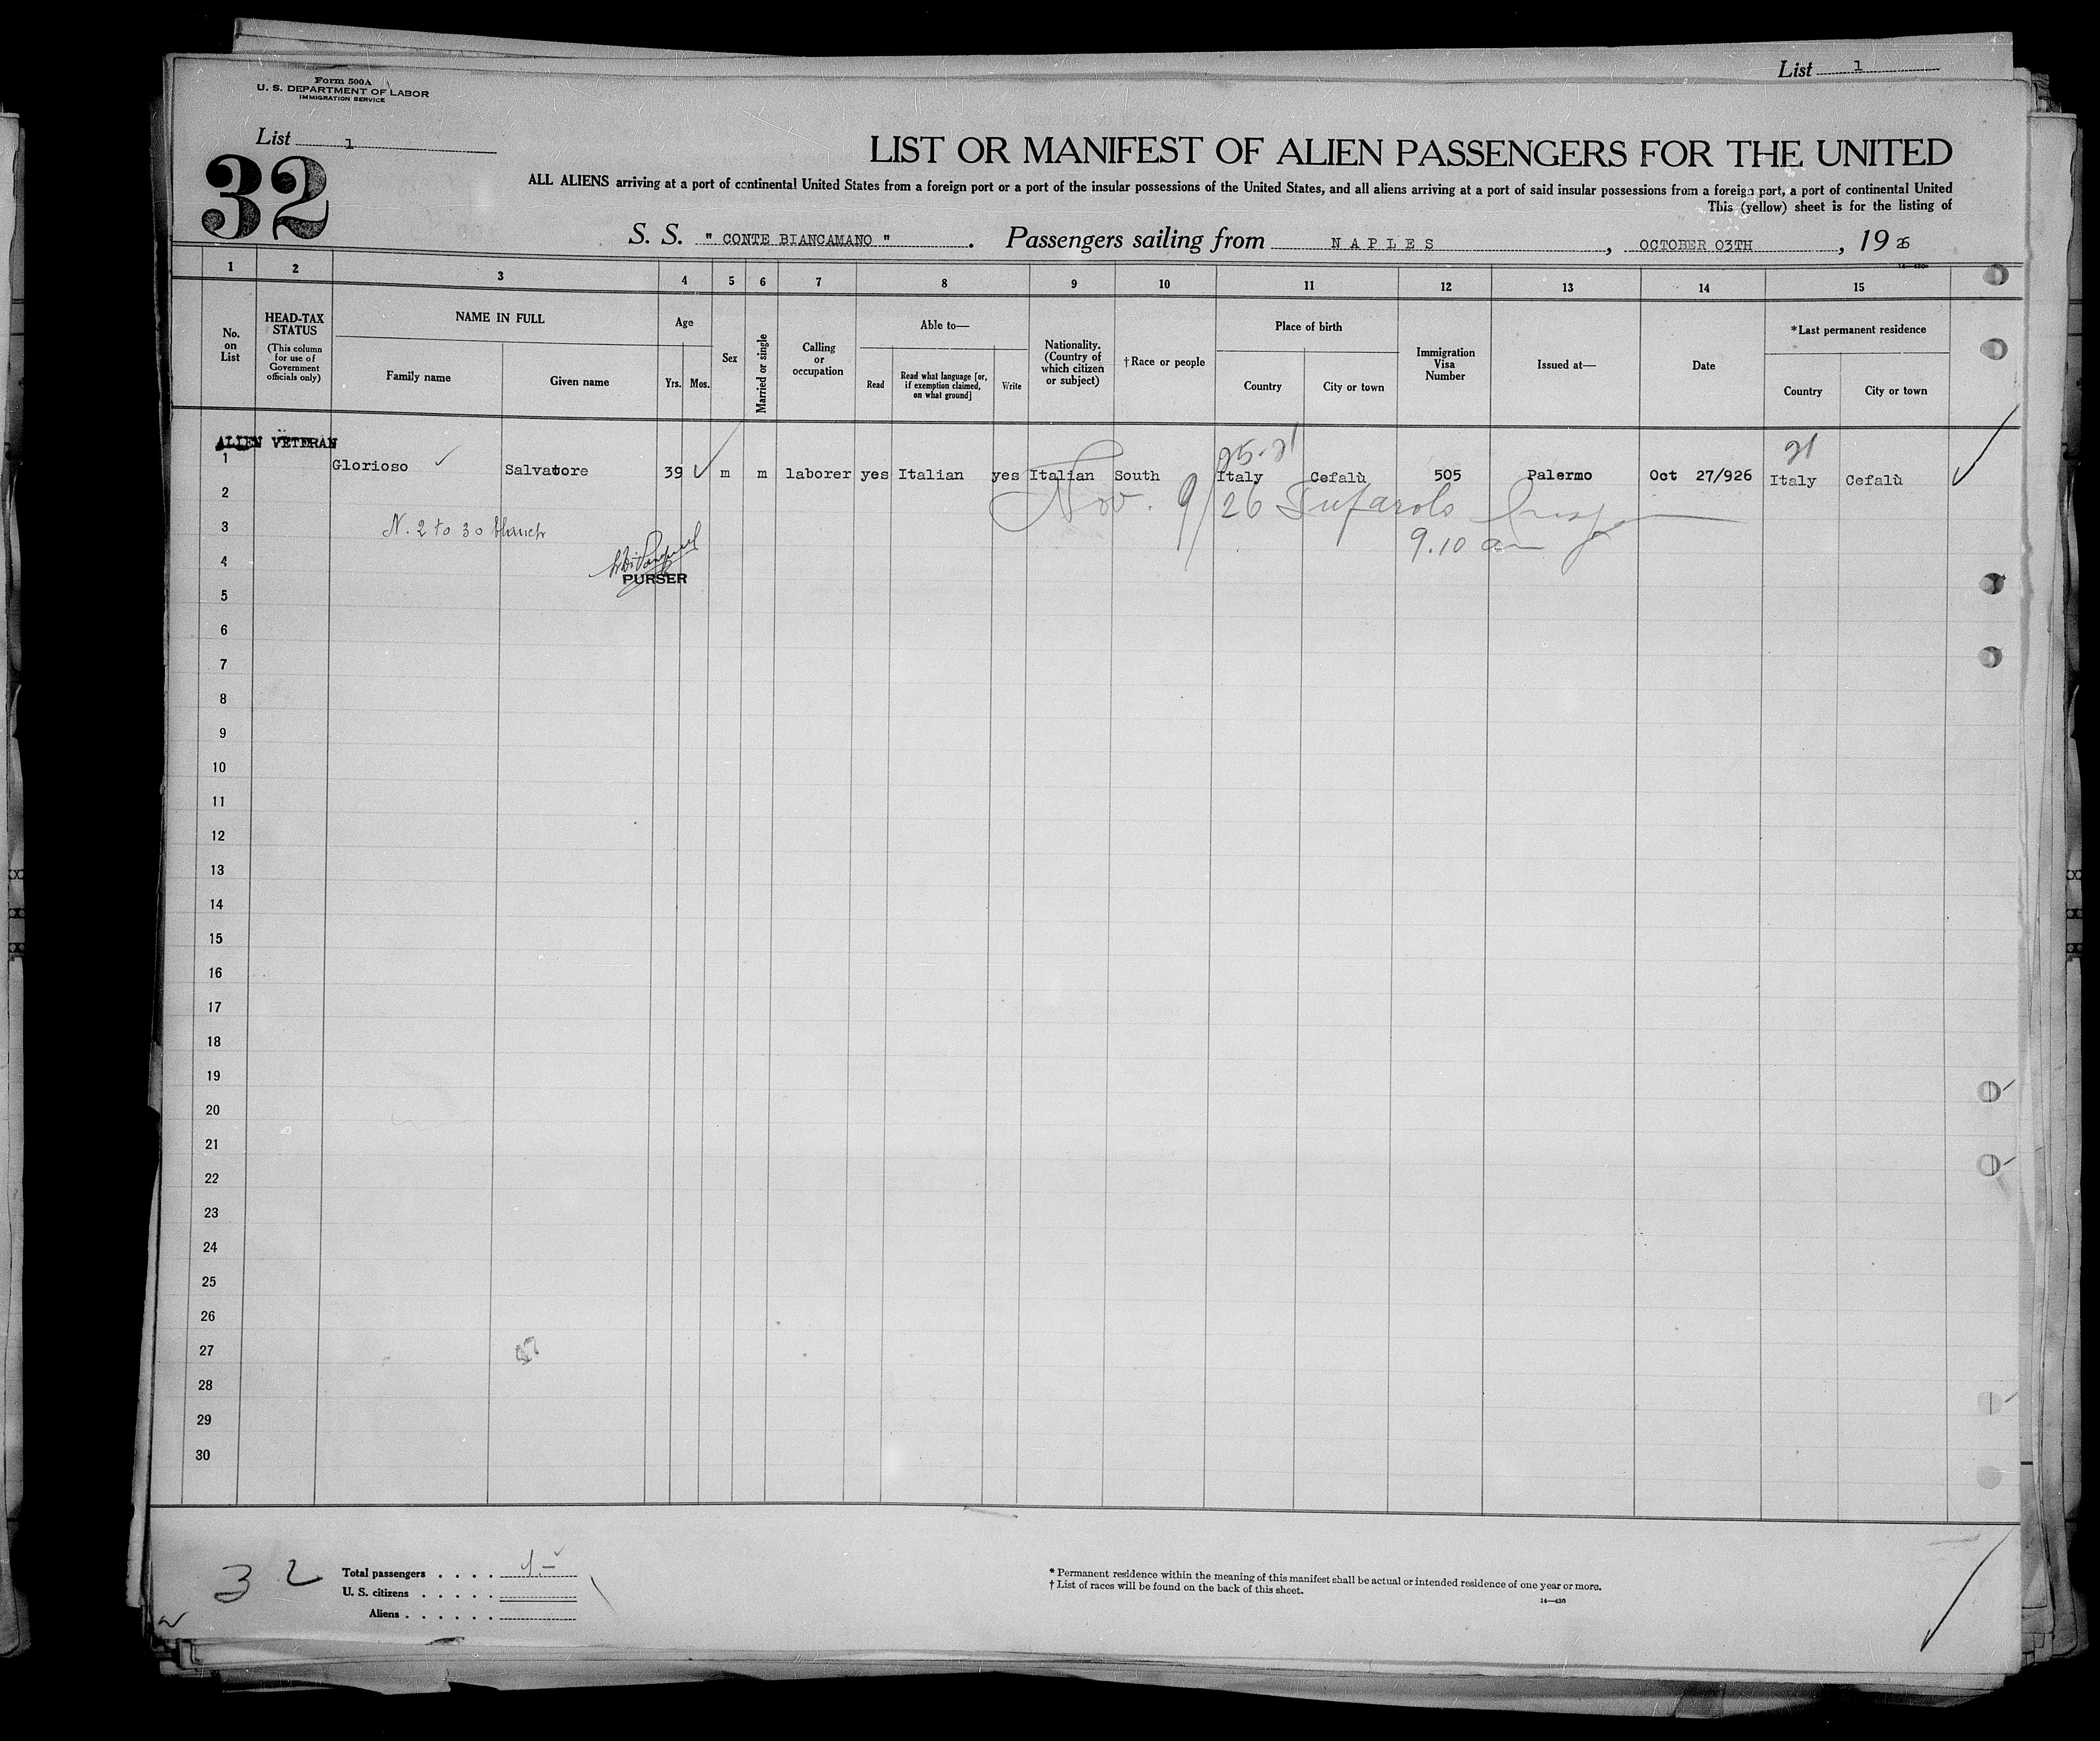 List 1
Form 500A
U. S. DEPARTMENT OF LABOR
IMMIGRATION SERVICE
List 1
32
LIST OR MANIFEST OF ALIEN PASSENGERS FOR THE UNITED
ALL ALIENS arriving at a port of continental United States from a foreign port or a port of the insular possessions of the United States, and all aliens arriving at a port of said insular possessions from a foreign port, a port of continental United
This (yellow) sheet is for the listing of
S. S. " CONTE BIANCAMANO ". Passengers sailing from NAPLES, OCTOBER 03TH, 19 26
1 2 3 4 5 6 7 8 9 10 11 12 13 14 15
No. on List
HEAD-TAX STATUS
(This column for use of Government officials only)
NAME IN FULL
Family name
Given name
Age
Yrs.
Mos.
Sex
Married or single
Calling or occupation
Able to—
Read
Read what language [or, if exemption claimed, on what ground]
Write
Nationality. (Country of which citizen or subject)
†Race or people
Place of birth
Country
City or town
Immigration Visa Number
Issued at—
Date
*Last permanent residence
Country
City or town
ALIEN VETERAN
1 Glorioso Salvatore 39 m m laborer yes Italian yes Italian South Italy Cefalù 505 Palermo Oct 27/926 Italy Cefalù
2
Nov. 9/26
3
N. 2 to 30 blanch
9.10 am
4
PURSER
5
6
7
8
9
10
11
12
13
14
15
16
17
18
19
20
21
22
23
24
25
26
27
28
29
30
32
Total passengers . . . . 1
U. S. citizens . . . . .
Aliens . . . . . .
* Permanent residence within the meaning of this manifest shall be actual or intended residence of one year or more.
† List of races will be found on the back of this sheet.
14—430